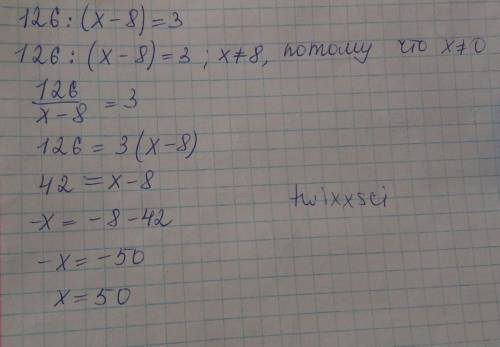 126 : (x-8) = 3
126 : (x-8) = 3 ; x≠8, потому что x≠0
126
x-8 = 3
126 = 3(x-8)
42 = x-8
twixxsci
-x = -8-42
-x = -50
x = 50